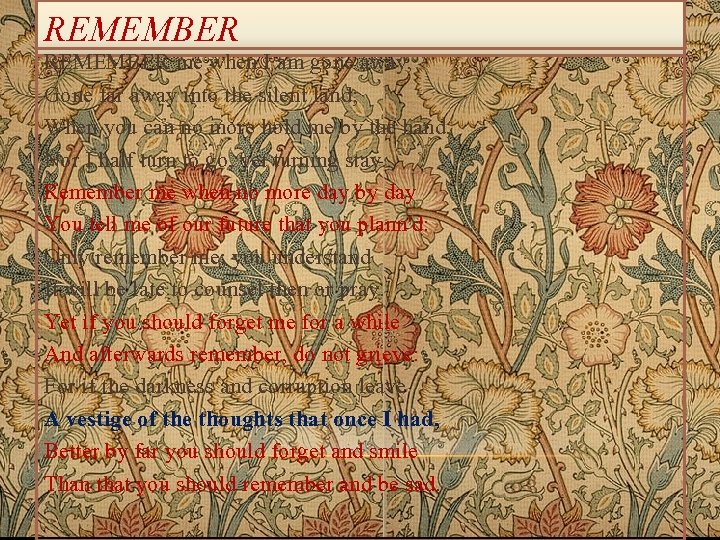 REMEMBER
REMEMBER me when I am gone away,
Gone far away into the silent land;
When you can no more hold me by the hand,
Nor I half turn to go, yet turning stay.
Remember me when no more day by day
You tell me of our future that you plann'd:
Only remember me; you understand
It will be late to counsel then or pray.
Yet if you should forget me for a while
And afterwards remember, do not grieve:
For if the darkness and corruption leave
A vestige of the thoughts that once I had,
Better by far you should forget and smile
Than that you should remember and be sad.